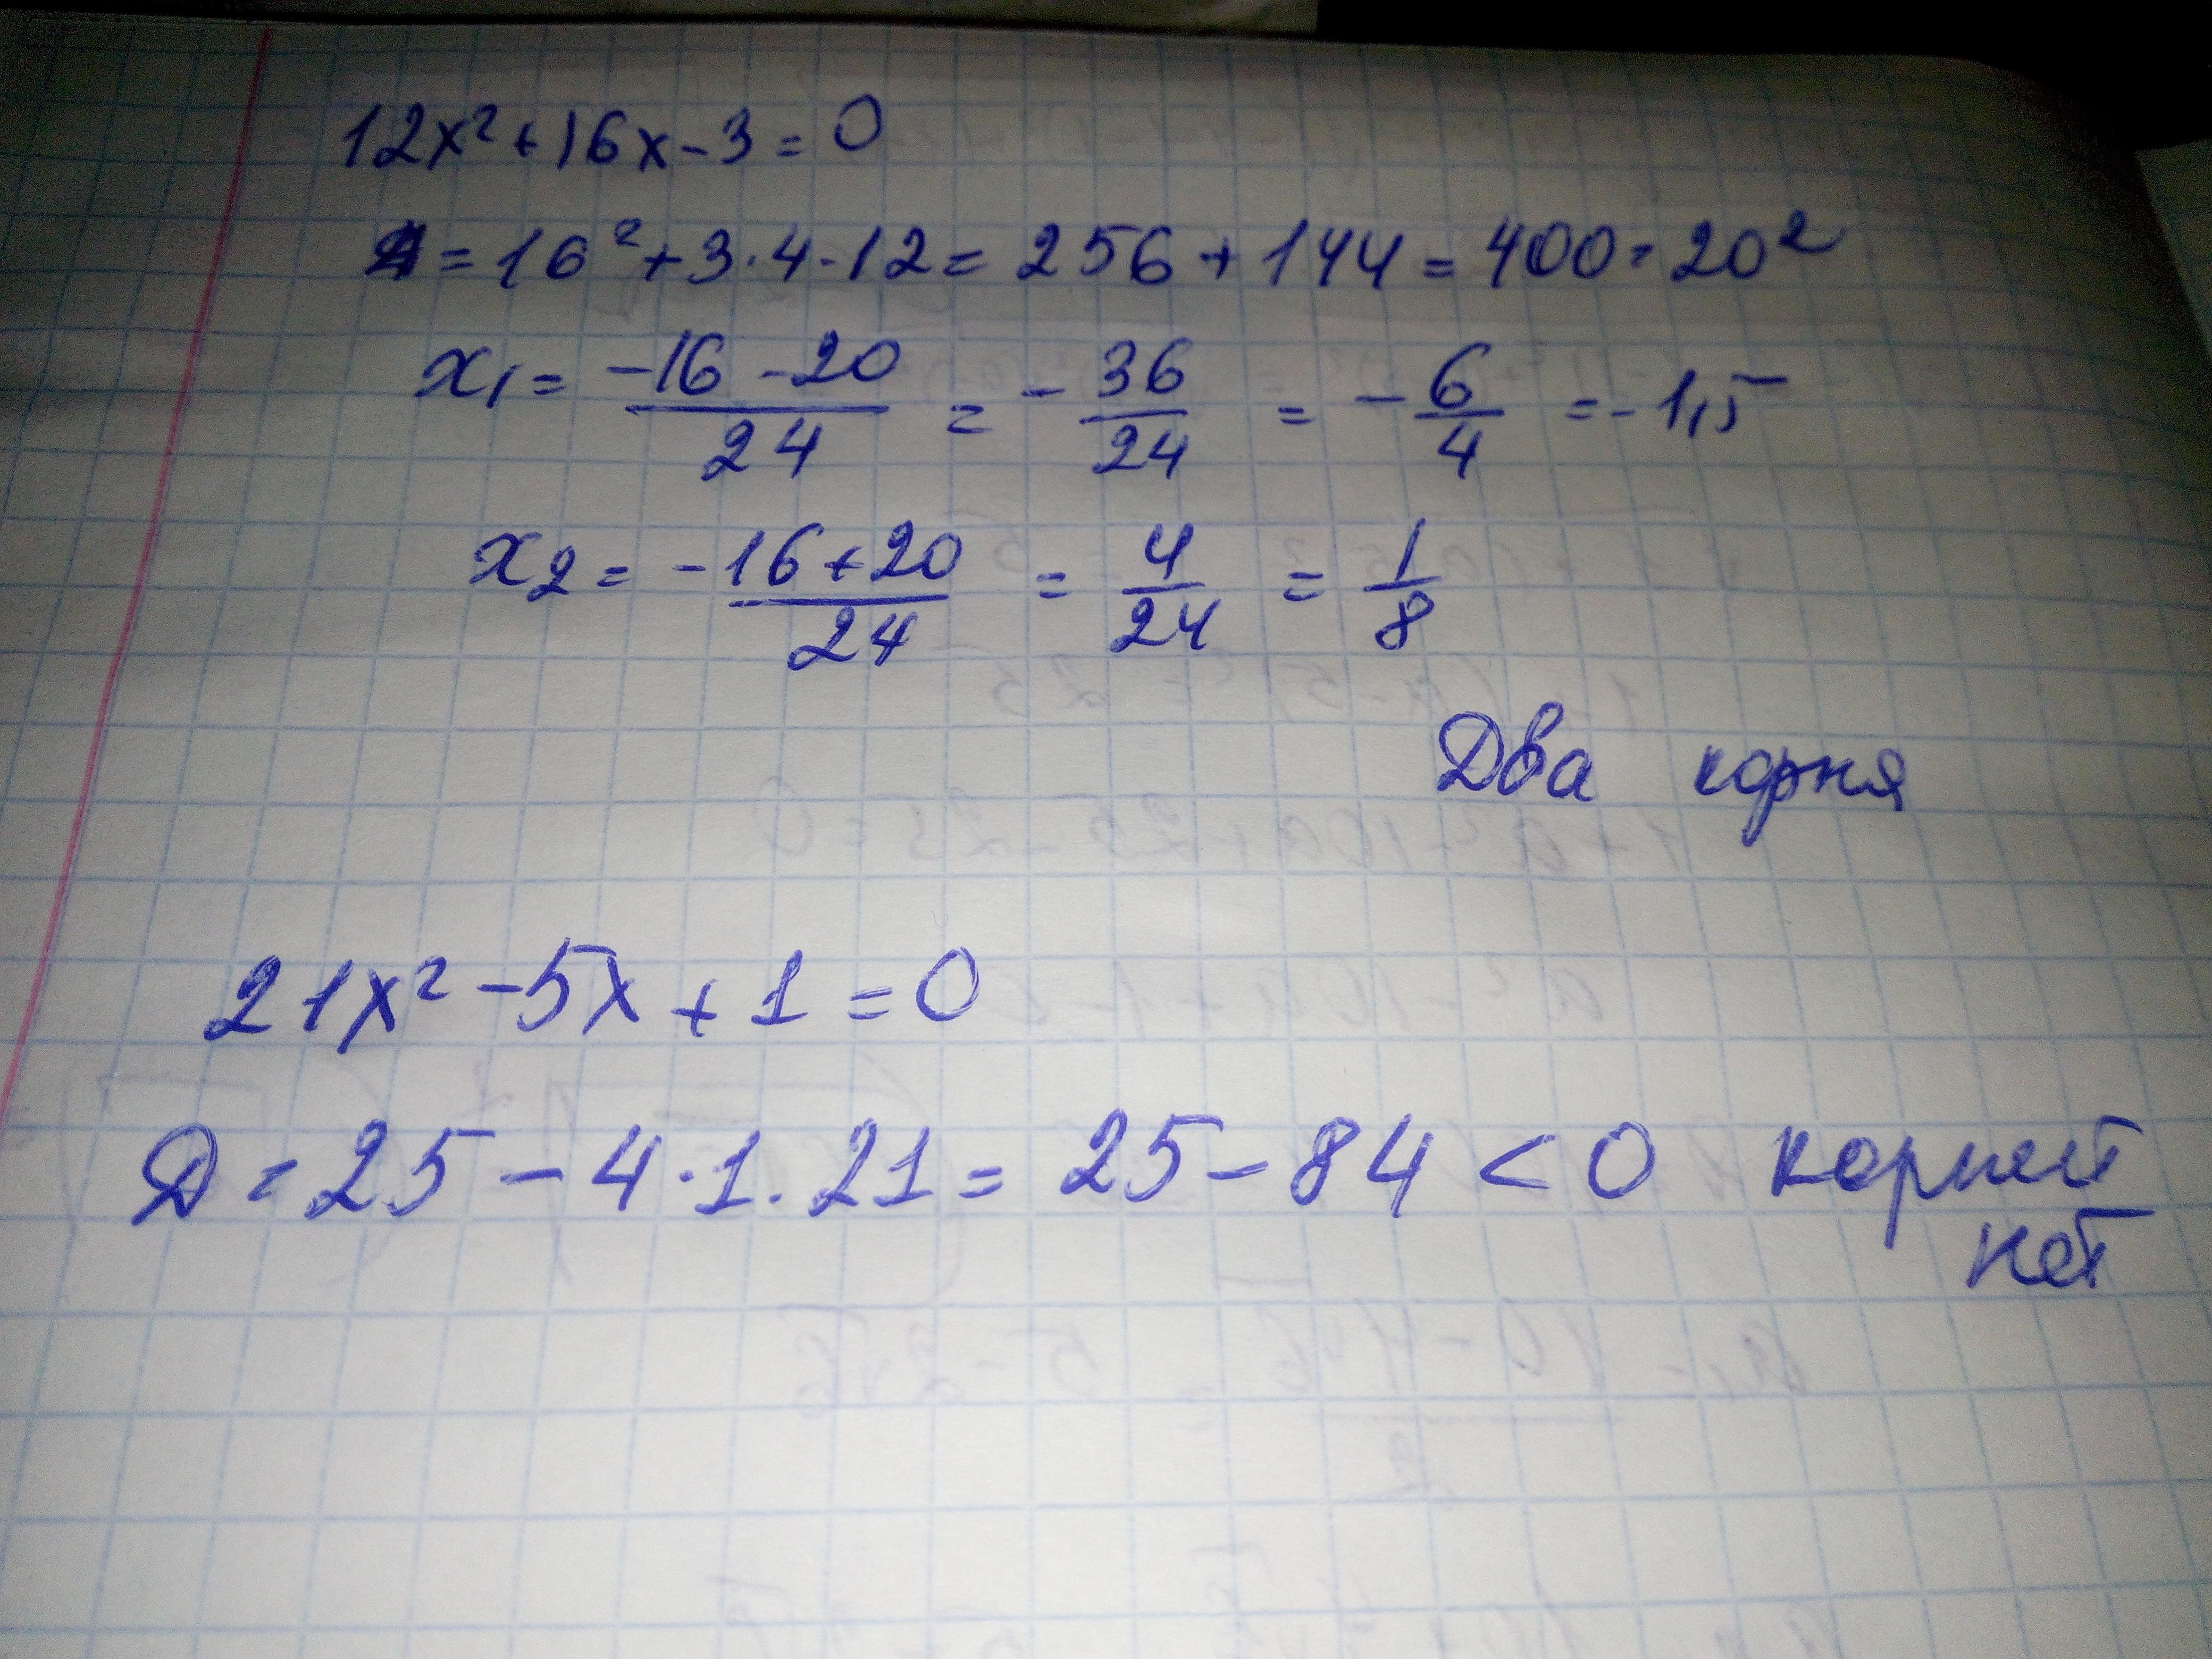 12x² + 16x - 3 = 0
Д = 16² + 3·4·12 = 256 + 144 = 400 = 20²
x₁ = (-16 - 20)/24 = -36/24 = -6/4 = -1,5
x₂ = (-16 + 20)/24 = 4/24 = 1/8
Два корня
21x² - 5x + 1 = 0
Д = 25 - 4·1·21 = 25 - 84 < 0 корней
нет